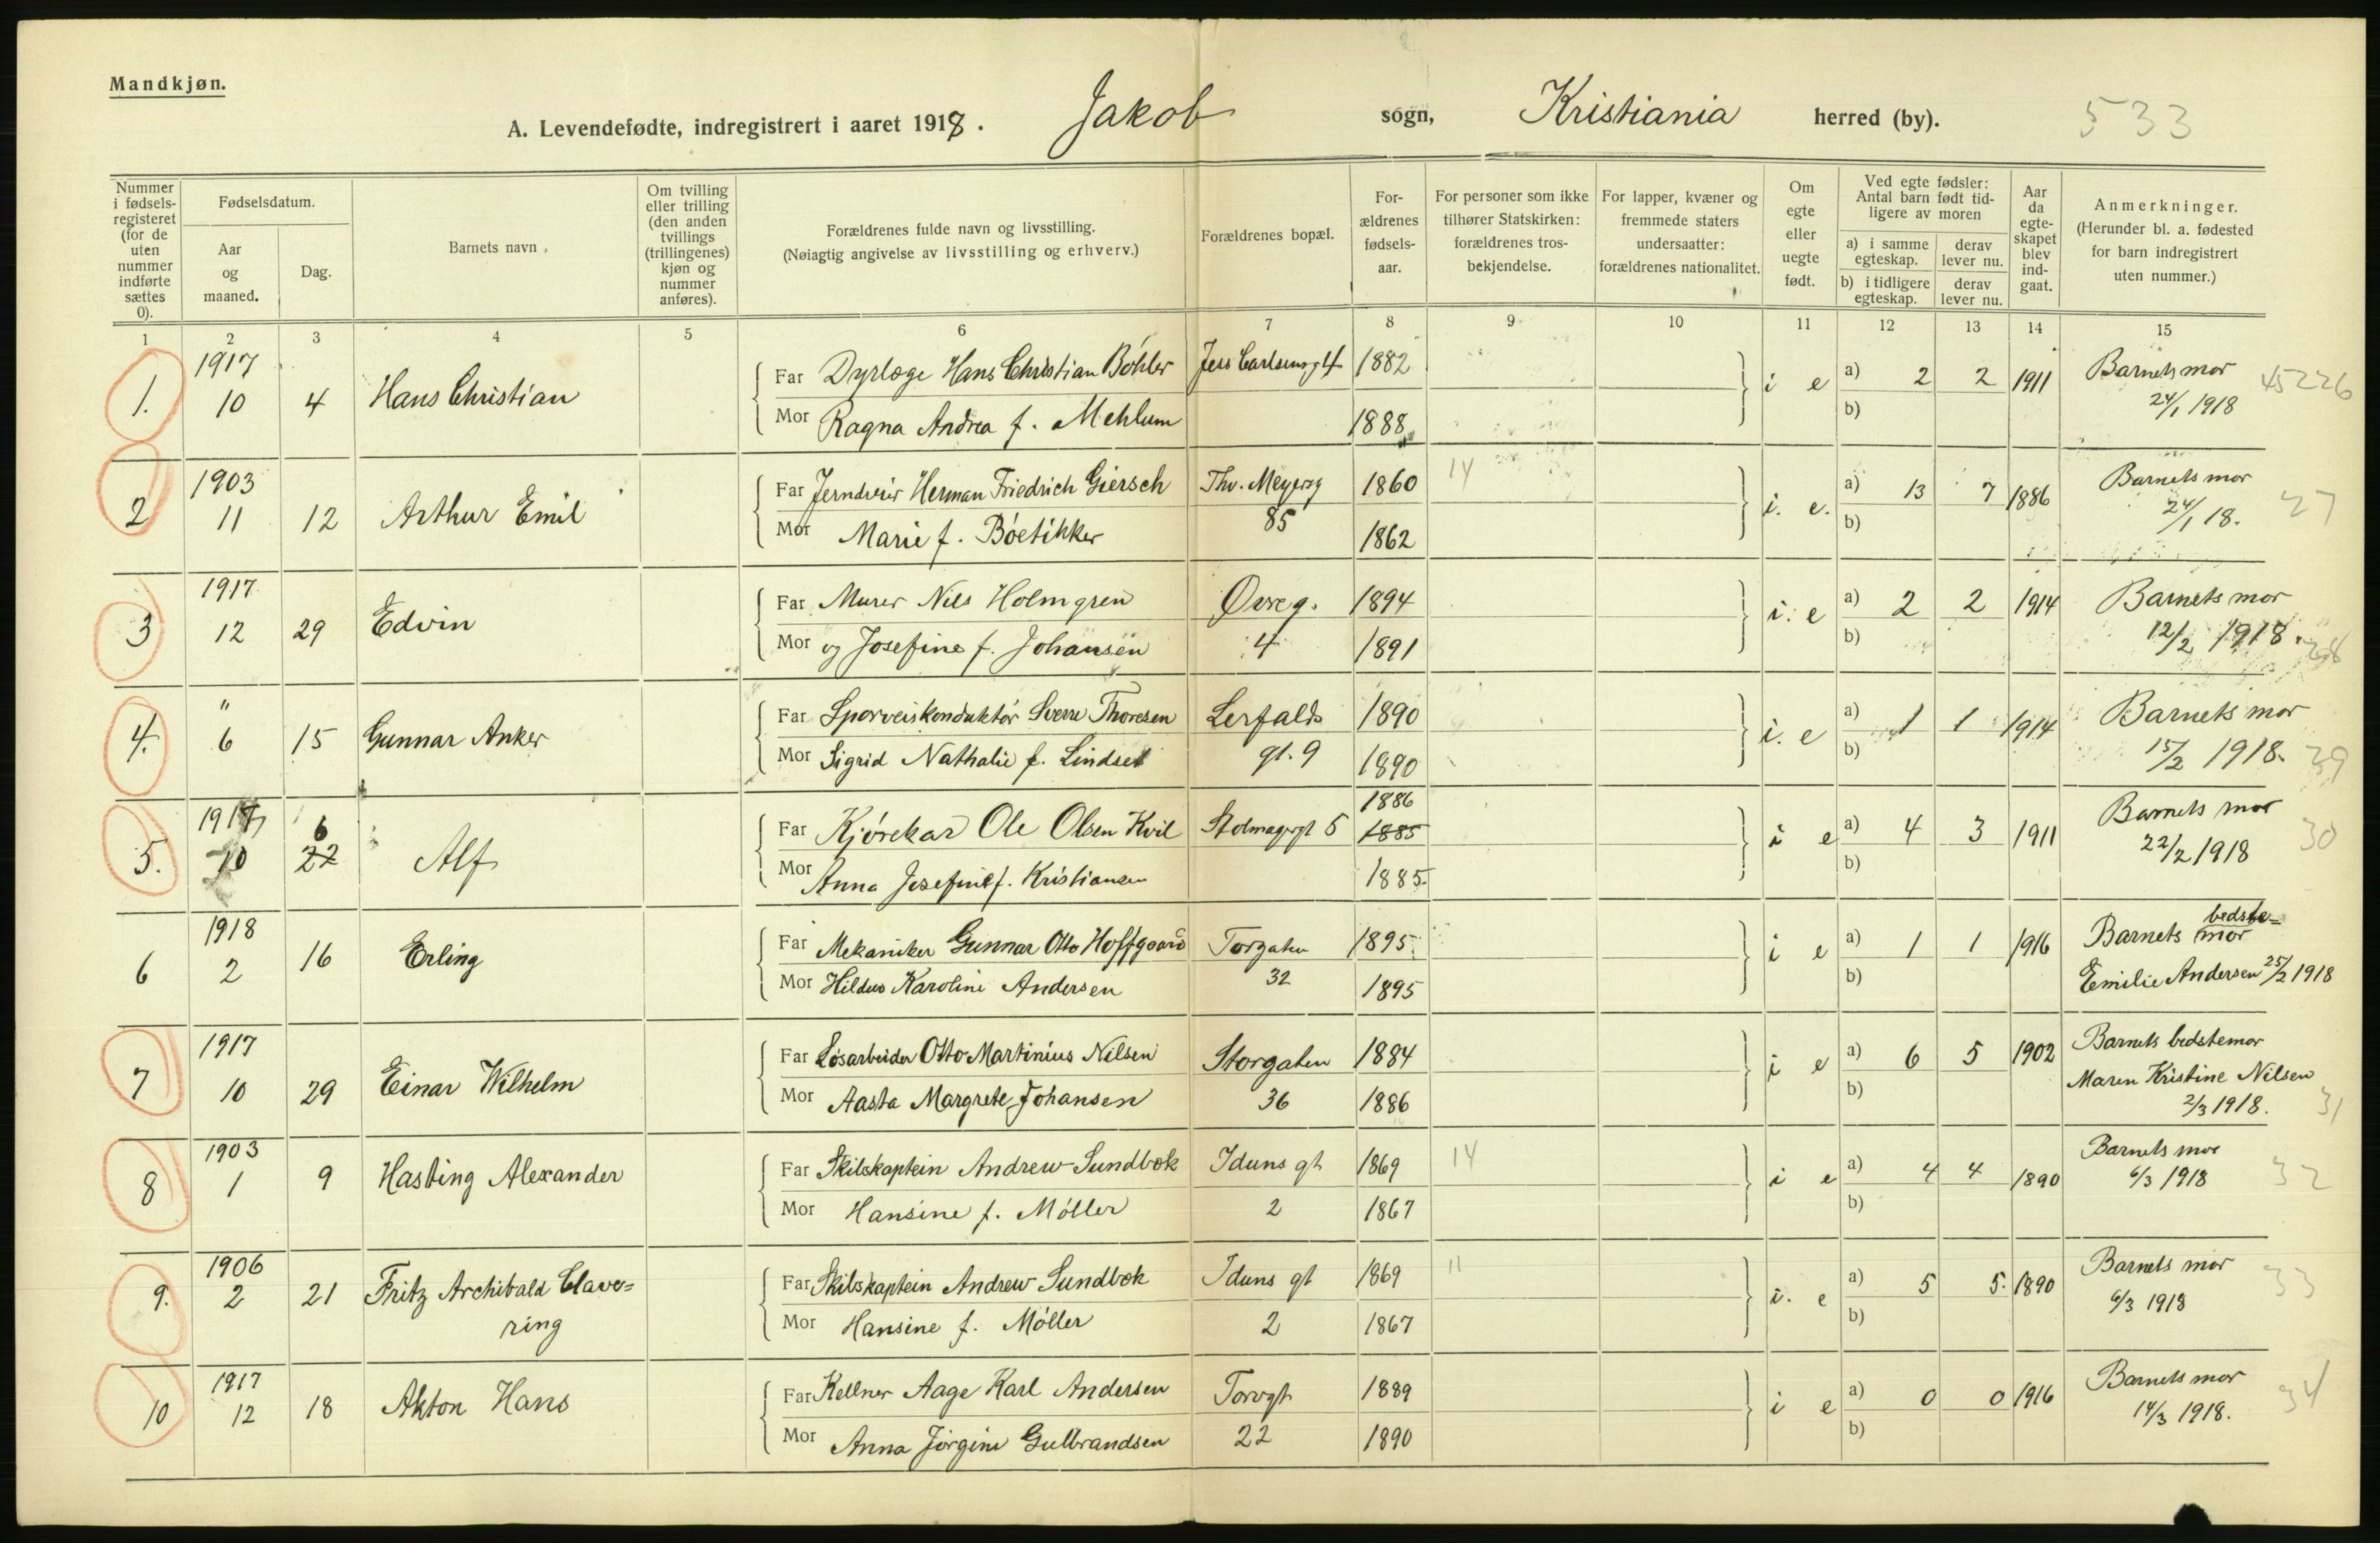 Mandkjøn.
A. Levendefødte, indregistrert i aaret 1918. Jakob sogn, Kristiania herred (by). 533
Nummer i fødselsregisteret (for de uten nummer indførte sættes 0).
Fødselsdatum.
Aar og maaned.
Dag.
Barnets navn
Om tvilling eller trilling (den anden tvillings (trillingenes) kjøn og nummer anføres).
Forældrenes fulde navn og livsstilling.
(Nøiagtig angivelse av livsstilling og erhverv.)
Forældrenes bopæl.
Forældrenes fødselsaar.
For personer som ikke tilhører Statskirken: forældrenes trosbekjendelse.
For lapper, kvæner og fremmede staters undersaatter: forældrenes nationalitet.
Om egte eller uegte født.
Ved egte fødsler: Antal barn født tidligere av moren
a) i samme egteskap. derav lever nu.
b) i tidligere egteskap. derav lever nu.
Aar da egteskapet blev indgaat.
Anmerkninger.
(Herunder bl. a. fødested for barn indregistrert uten nummer.)
1 2 3 4 5 6 7 8 9 10 11 12 13 14 15
1. 1917 10 4 Hans Christian Far Dyrlæge Hans Christian Bøhler Jess Carlsensg 4 1882 i e a) 2 2 1911 Barnets mor 45226
Mor Ragna Andrea f. Mehlum 1888 b) 24/1 1918
2 1903 11 12 Arthur Emil Far Jerndreier Herman Friedrich Giersch Thv. Meyersg 1860 14 i. e. a) 13 7 1886 Barnets mor 27
Mor Marie f. Bøetikker 85 1862 b) 24/1 18.
3 1917 12 29 Edvin Far Murer Nils Holmgren Øvreg. 1894 i. e a) 2 2 1914 Barnets mor
Mor og Josefine f. Johansen 4 1891 b) 12/2 1918. 28
4. " 6 15 Gunnar Anker Far Sporveiskonduktør Sverre Thoresen Lerfalds 1890 i. e a) 1 1 1914 Barnets mor
Mor Sigrid Nathalie f. Lindset gt. 9 1890 b) 15/2 1918. 29
5. 1917 10 6 22 Alf Far Kjørekar Ole Olsen Kvil Stolmagergt 5 1886 1885 i e a) 4 3 1911 Barnets mor 30
Mor Anna Josefine f. Kristiansen 1885 b) 22/2 1918
6 1918 2 16 Erling Far Mekaniker Gunnar Otto Hoffgaard Torgaten 1895 i e a) 1 1 1916 Barnets bedste-mor
Mor Hildur Karoline Andersen 32 1895 b) Emilie Andersen 25/2 1918
7 1917 10 29 Einar Wilhelm Far Løsarbeider Otto Martinius Nilsen Storgaten 1884 i e a) 6 5 1902 Barnets bedstemor
Mor Aasta Margrete Johansen 36 1886 b) Maren Kristine Nilsen
2/3 1918. 31
8 1903 1 9 Hasting Alexander Far Skibskaptein Andrew Sundbøk Iduns gt 1869 14 i e a) 4 4 1890 Barnets mor 32
Mor Hansine f. Møller 2 1867 b) 6/3 1918
9. 1906 2 21 Fritz Archibald Clave= Far Skibskaptein Andrew Sundbøk Iduns gt 1869 11 i. e a) 5 5. 1890 Barnets mor 33
ring Mor Hansine f. Møller 2 1867 b) 6/3 1918
10 1917 12 18 Akton Hans Far Kellner Aage Karl Andersen Torvgt 1889 i e a) 0 0 1916 Barnets mor 34
Mor Anna Jørgine Gulbrandsen 22 1890 b) 14/3 1918.